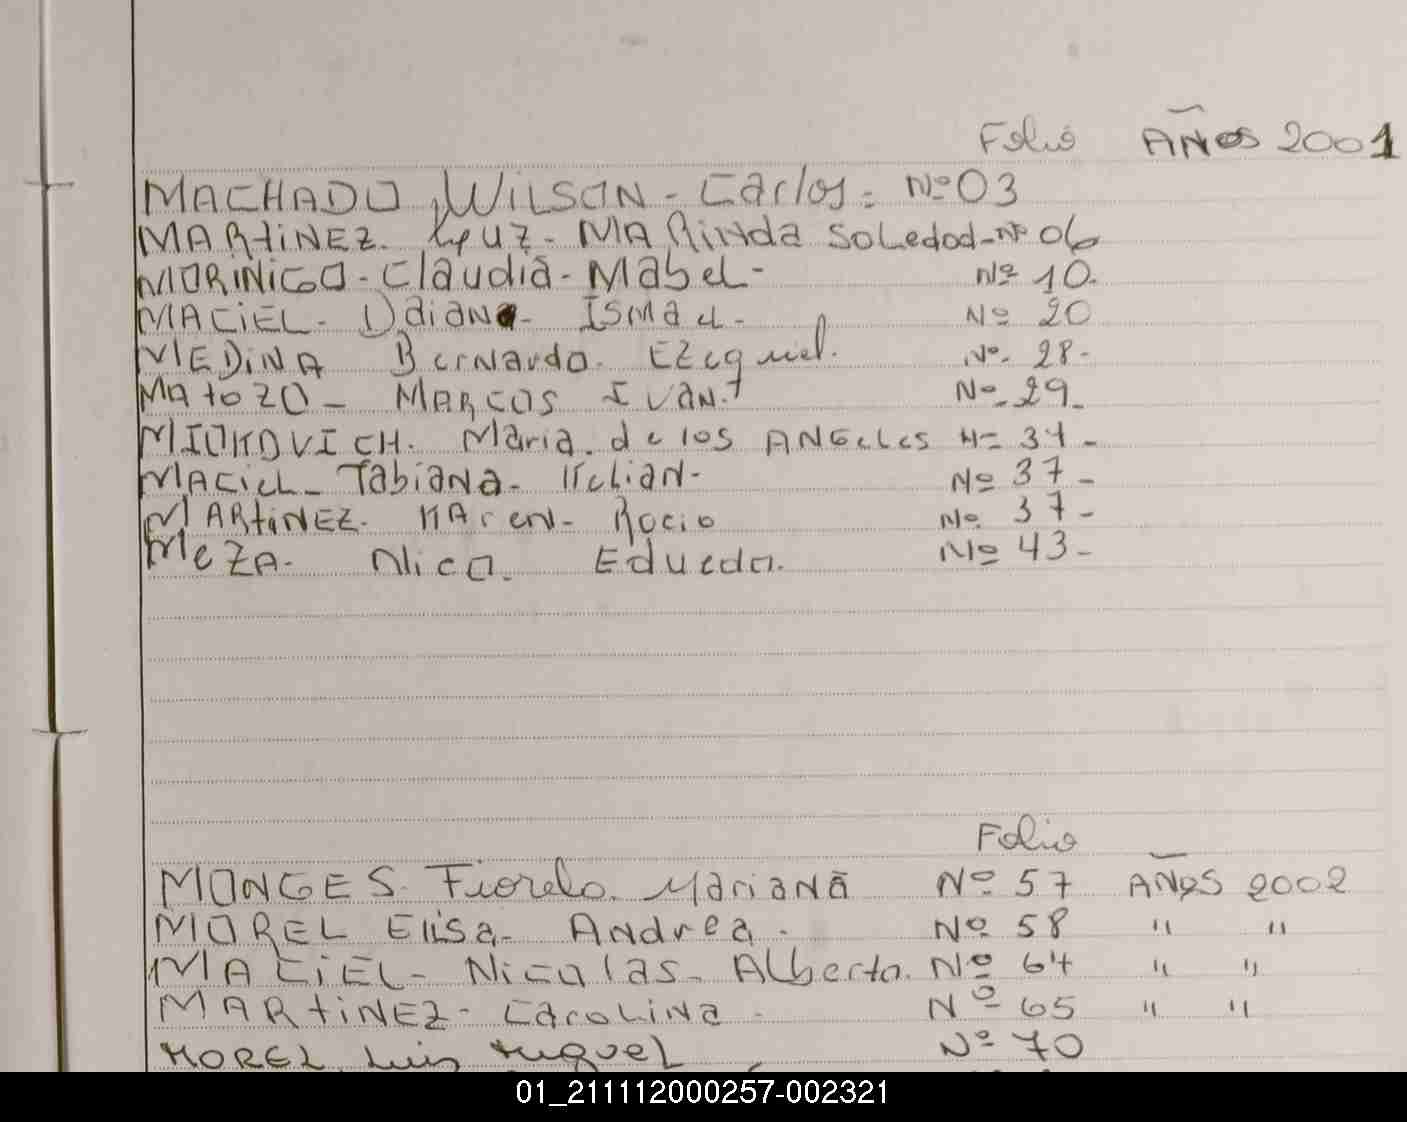 Folio AÑOS 2001
MACHADO, WILSON - Carlos - Nº 03
MARtiNEZ - Luz - MARINda Soledad - Nº 06
MORINIGO - Claudia - Mabel - Nº 10.
MACiEL - Daiana - Ismael - Nº 20
MEDiNA Bernardo. Ezequiel. Nº - 28 -
MAtoZO - MARCOS IVAN. Nº - 29 -
MIOKOVICH. Maria. de los ANGeles Nº 31 -
MACieL - Fabiana - Nº 37 -
MARtiNEZ - KAren - Rocio Nº 37 -
MeZA - Nico. Nº 43 -
Folio
MONGES. Fiorela. Mariana Nº 57 AÑOS 2002
MOREL Elisa - Andrea - Nº 58 " "
MACiEL - Nicolas - Alberto. Nº 64 " "
MARtiNEZ - Carolina - Nº 65 " "
MOREL Luis Miguel Nº 70
01_211112000257-002321